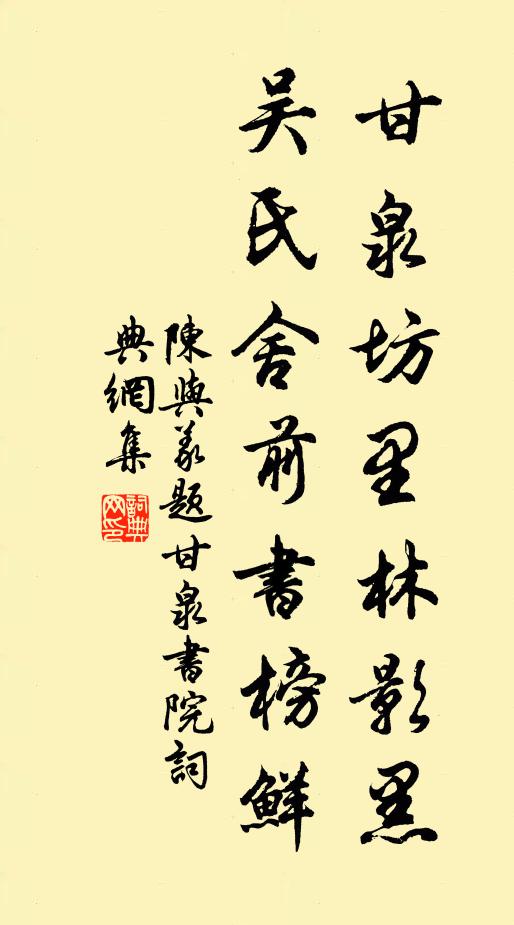 甘泉坊里林影黑
吴氏舍前書榜鮮
陳與義题甘泉書院詞
典網集
詞典
网印